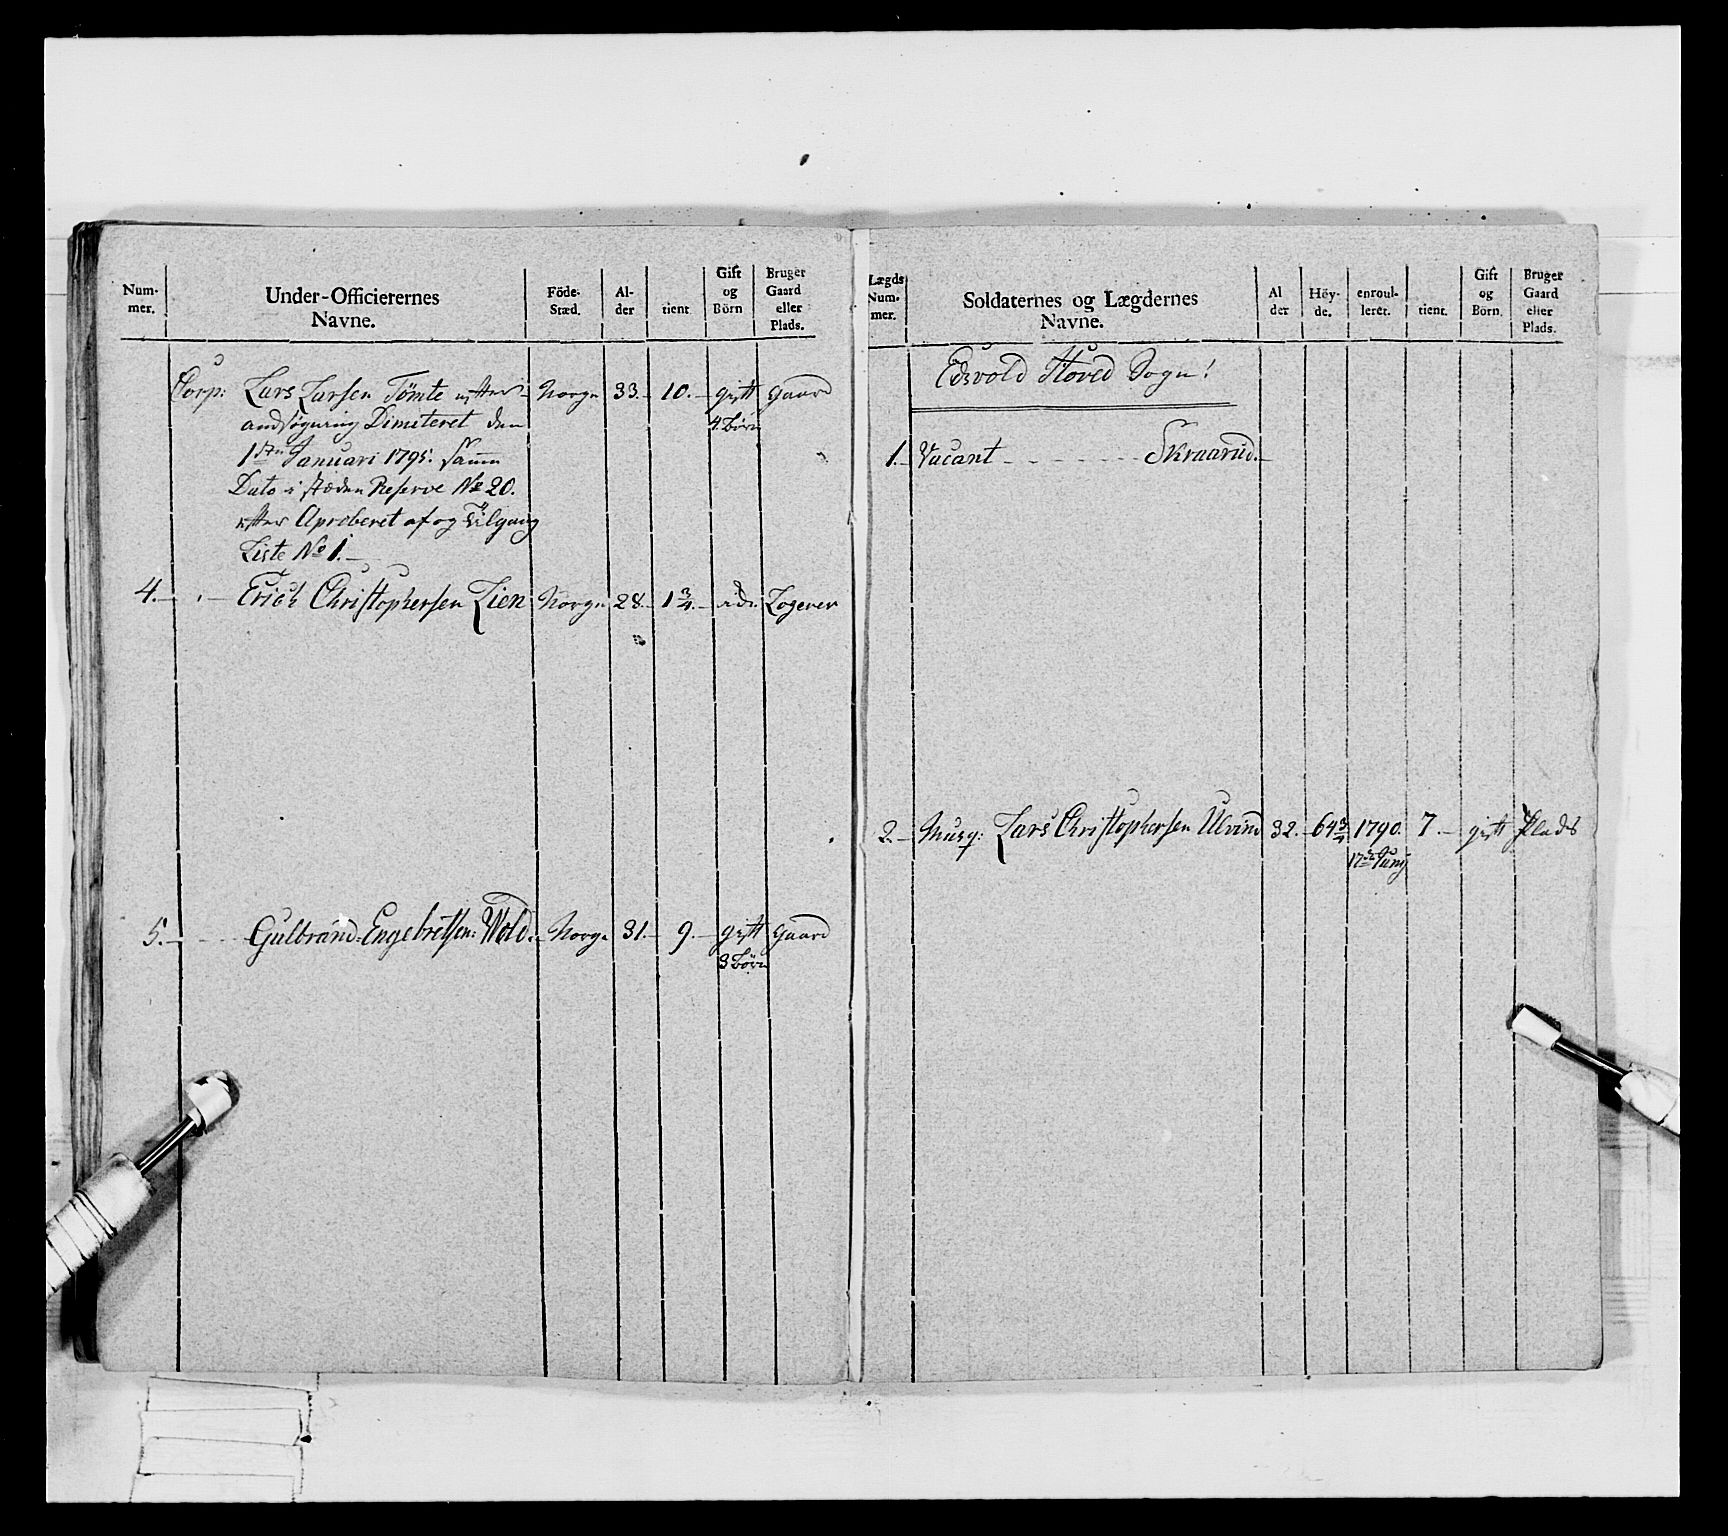 Num-
mer.
Under-Officierernes
Navne.
Föde-
Stæd.
Al-
der
tient
Gift
og
Börn
Bruger
Gaard
eller
Plads.
Corp: Lars Larsen Tömte efter Norge 33. 10. gift Gaard
andsögning Dimiteret den 4 Börn
1ste Januari 1795. samme
Dato i stæden Reserve No 20.
efter Aproberet af og Tilgang
Liste No 1.
4. Erich Christophersen Lien Norge 28. 1 3/4. Logerer
5. Gulbrand Engebretsen: Wold. Norge 31. 9. gift Gaard
3 Börn
Lægds
Num-
mer.
Soldaternes og Lægdernes
Navne.
Al
der
Höy-
de.
enroul-
leret.
tient.
Gift
og
Börn.
Bruger
Gaard
eller
Plads.
Edsvold Hoved Sogn!
1. Vacant Skraarud.
2. Musq: Lars Christophersen Ulvind 32. 64 3/4 1790. 7. gift Plads
17de Junij